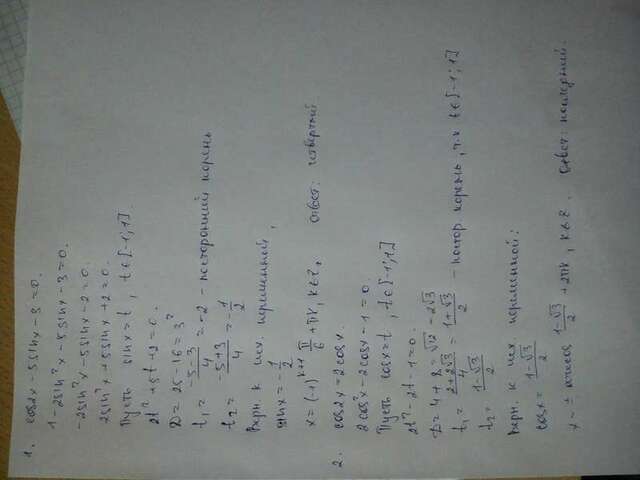 1. cos2x - 5sinx - 3 = 0.
1 - 2sin²x - 5sinx - 3 = 0.
-2sin²x - 5sinx - 2 = 0.
2sin²x + 5sinx + 2 = 0.
Пусть sinx = t, t∈[-1;1].
2t² + 5t + 2 = 0.
D = 25 - 16 = 3²
t₁ = (-5-3)/4 = -2 - посторонний корень
t₂ = (-5+3)/4 = -1/2
Верн. к исх. переменной.
sinx = -1/2
x = (-1)^(k+1) π/6 + πk, k∈Z, Ответ: четвертый
2. cos2x = 2cosx.
2cos²x - 2cosx - 1 = 0.
Пусть cosx = t, t∈[-1;1]
2t² - 2t - 1 = 0.
D = 4 + 8 = √12 = 2√3
t₁ = (2+2√3)/4 = (1+√3)/2 - постор. корень, т.к t∈[-1;1]
t₂ = (1-√3)/2
Верн. к исх. переменной:
cosx = (1-√3)/2
x = ± arccos (1-√3)/2 + 2πk, k∈Z. Ответ: